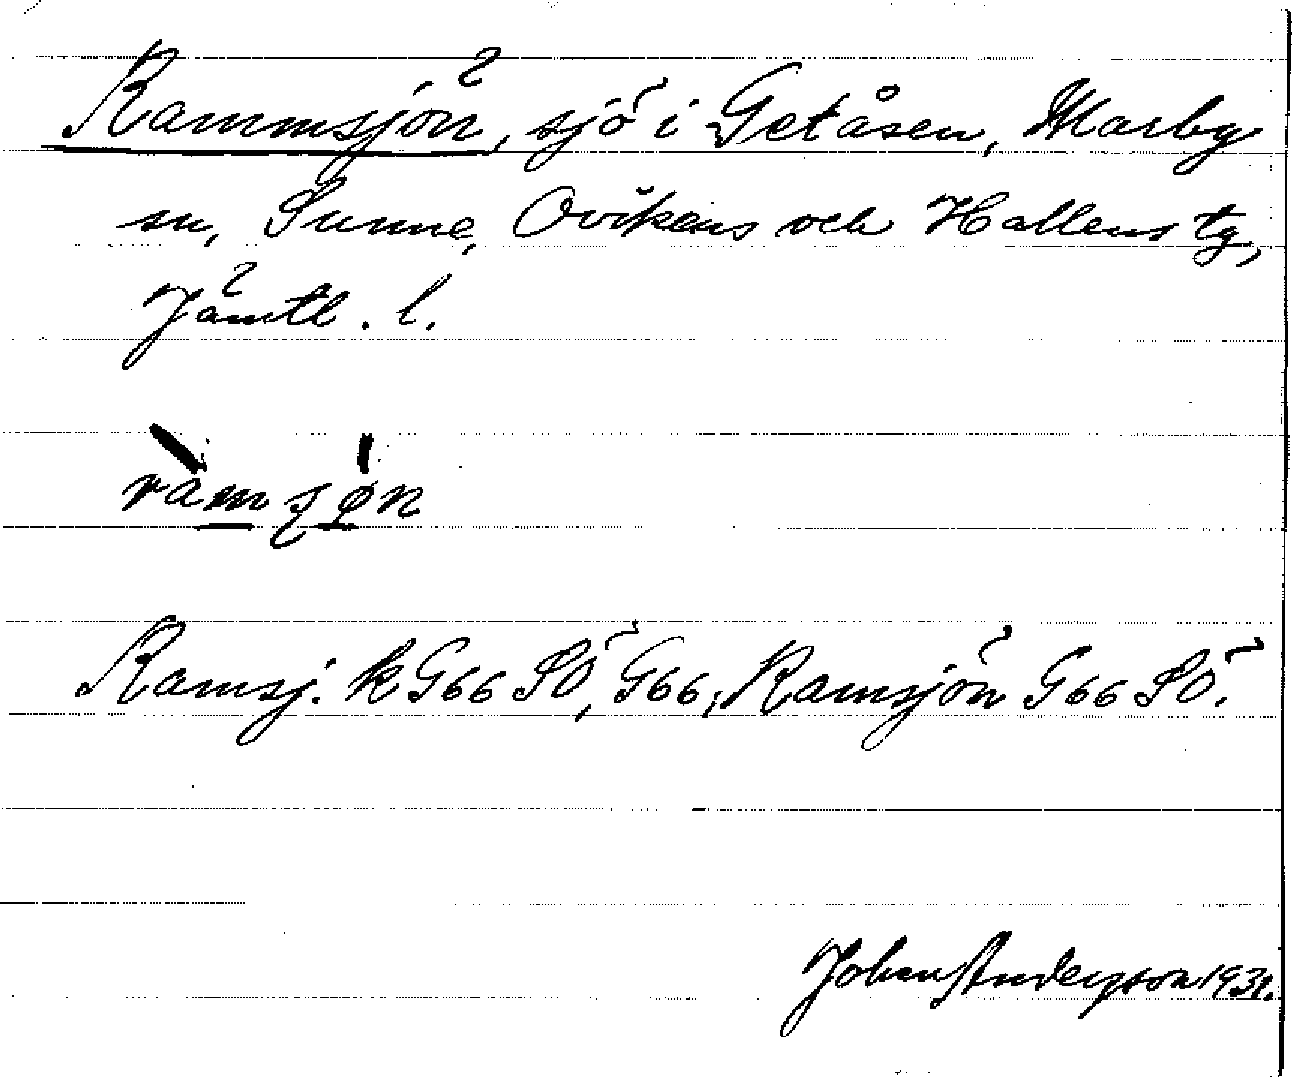 Rammsjön, sjö i Getåsen, Marby
sn, Sunne, Ovikens och Hallens tg,
Jämtl. l.
ràmʂø̀n
Ramsj. k G66 SÖ, G66, Ramsjön G66 SÖ.
Johan Anderson 1931.